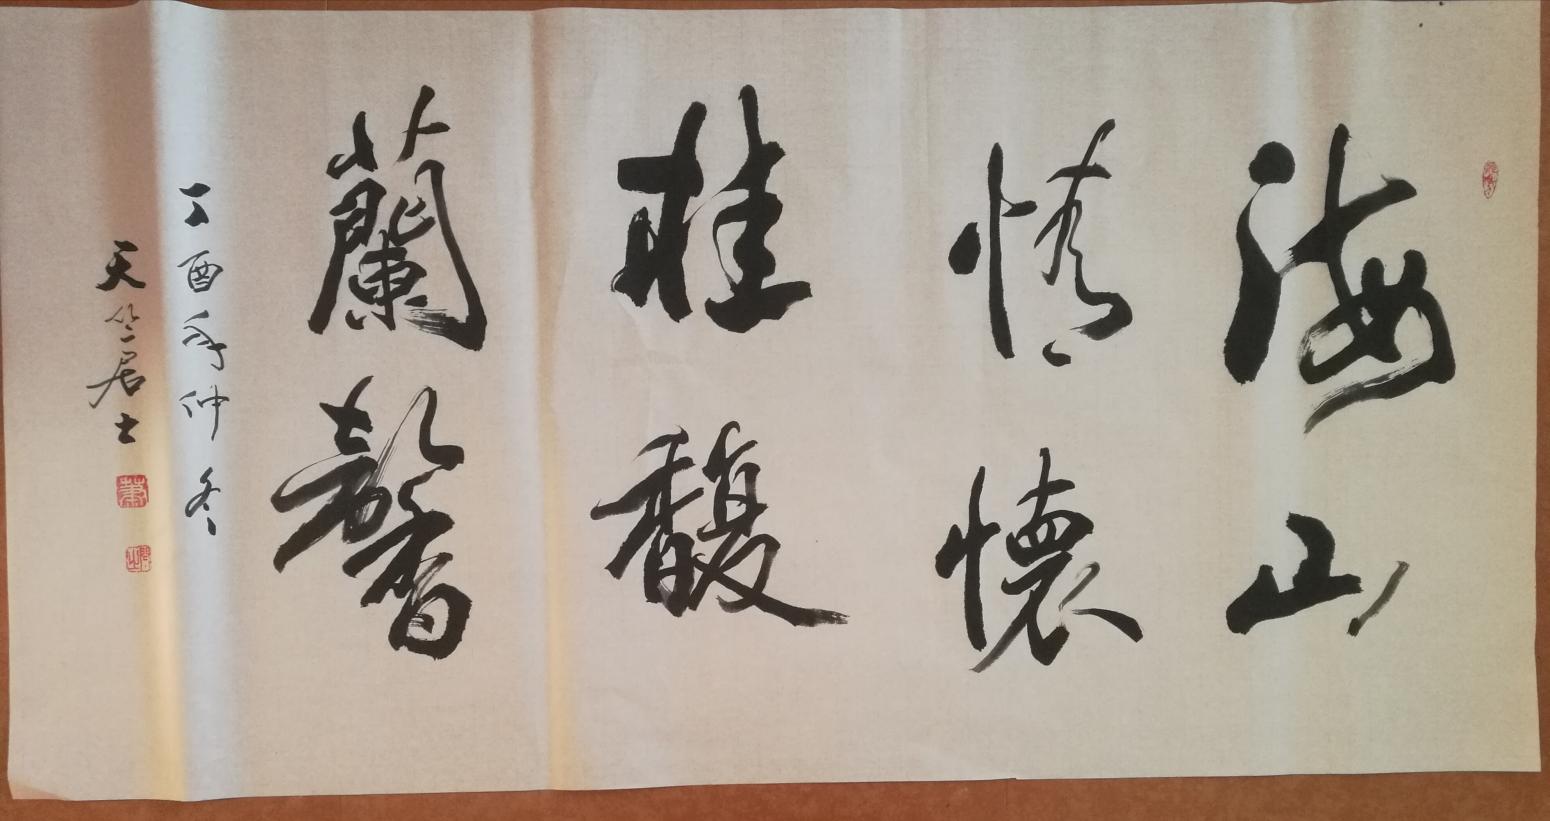 海山
情懷
桂馥
蘭馨
丁酉年仲冬
天竺居士